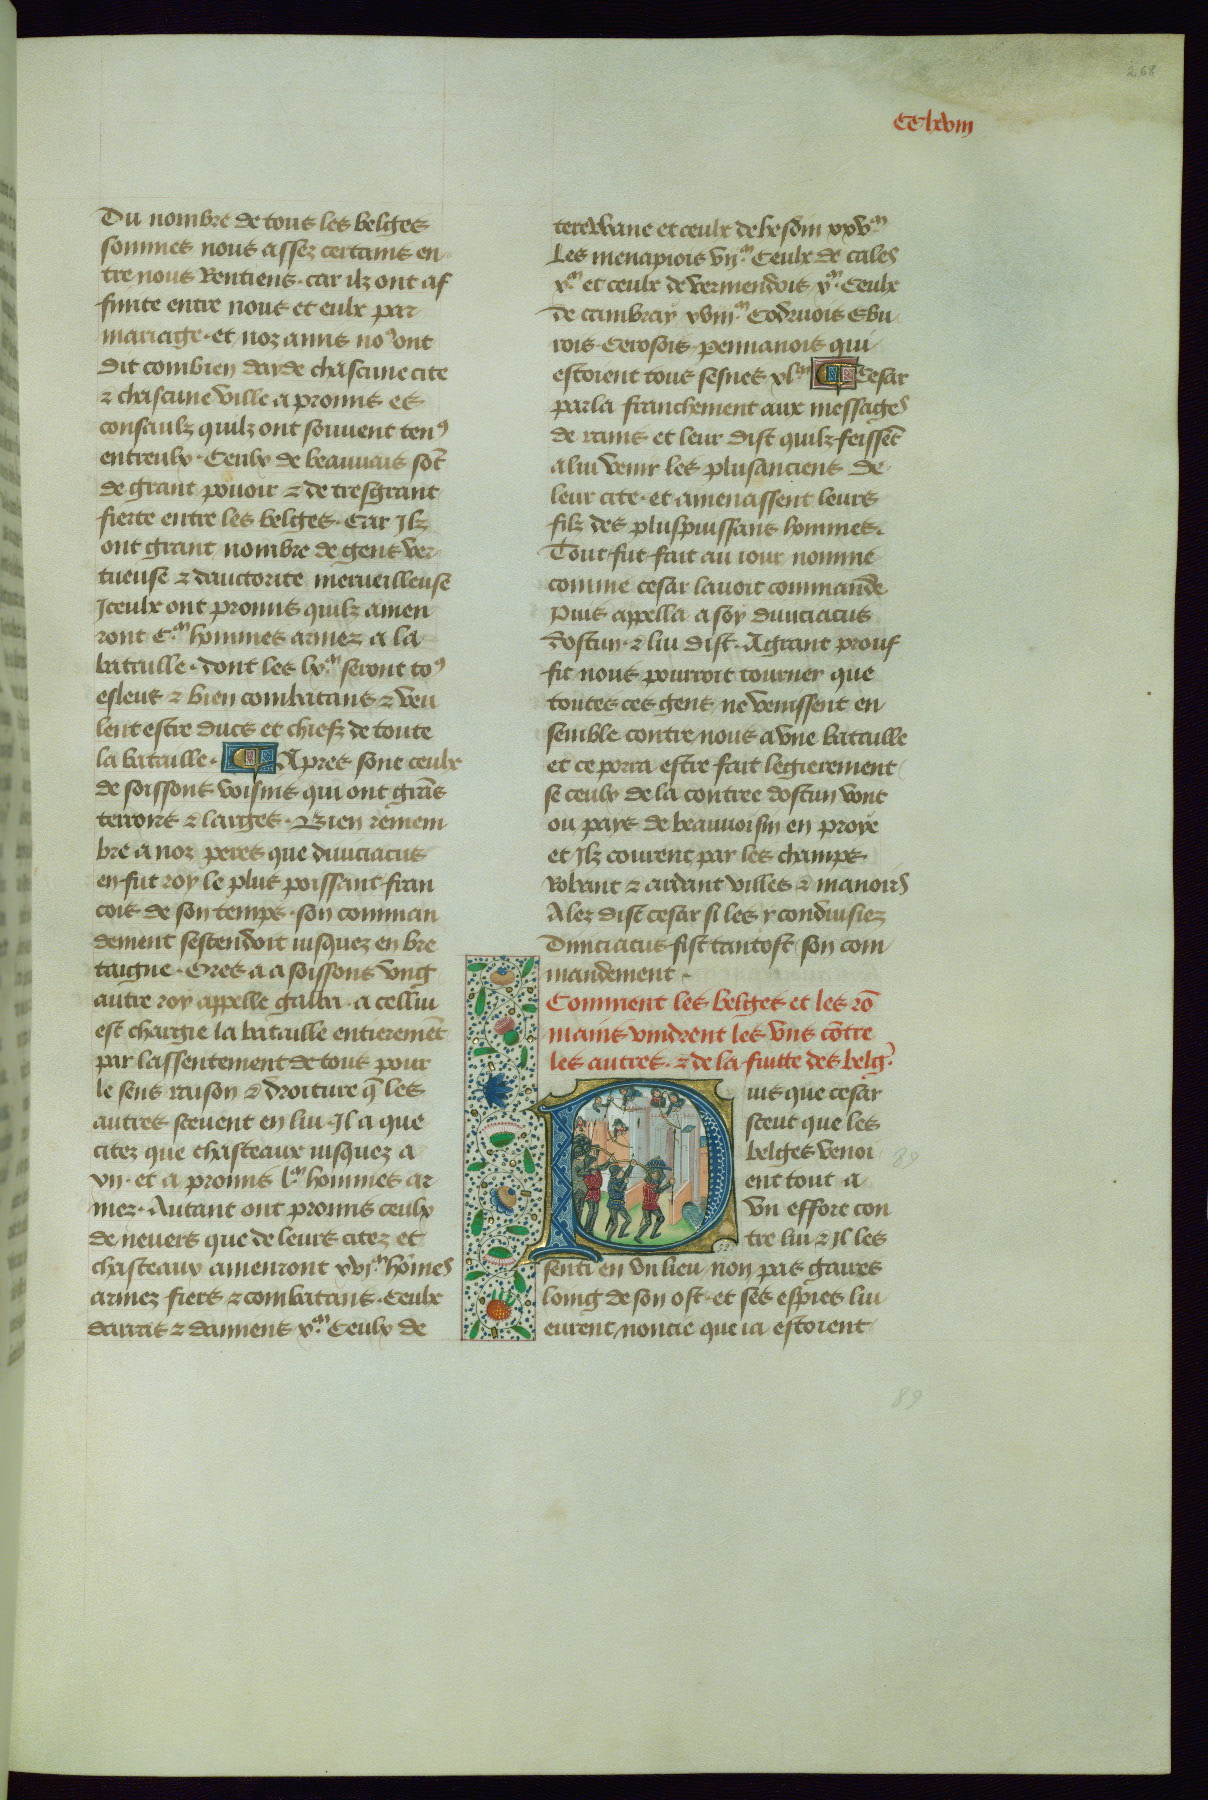 268
CClxviii
Du nombre de tous les belges
sommes nous assez certains en
tre nous Rentiens. car ilz ont af
finite entre nous et eulx par
mariage. et noz amis noꝰ ont
dit combien dayde chascune cite
⁊ chascune ville a promis es
consaulz quilz ont souvent tenꝰ
entreulx. Ceulx de beauvais sōt
de grant pouoir ⁊ de tresgrant
fierte entre les belges. Car Ilz
ont grant nombre de gens ver
tueuse ⁊ dauctorite merveilleuse
Iceulx ont promis quilz amen
ront C.m hommes armez a la
bataille. dont les lx.m seront toꝰ
esleus ⁊ bien combatans ⁊ veu
lent estre ducs et chiefz de toute
la bataille. Apres sont ceulx
de soissons voisins qui ont grās
terroirs ⁊ larges. Bien remem
bre a noz peres que duuciacus
en fut roy le plus poissant fran
cois de son temps. son comman
dement sestendoit iusquez en bre
taigne. Ores a a soissons vng
autre roy appelle galba. a cellui
est chargie la bataille entieremēt
par lassentement de tous pour
le sens raison ⁊ droiture q̄ les
autres scevent en lui. Il a que
citez que chasteaux iusquez a
vii. et a promis l.m hommes ar
mez. Autant ont promis ceulx
de nevers que de leurs citez et
chasteaux amenront xvi.m hōmes
armez fiers ⁊ combatans. Ceulx
darras ⁊ damiens x.m Ceulx de
terewane et ceulx de hesdin xxv.m
Les menapiois vii.m Ceulx de cales
x.m et ceulx de vermendois x.m Ceulx
de cambray xviii.m Codruois Ebu
rois. Cerosois. pemanois qui
estoient tous sesnes xl.m Cesar
parla franchement aux messages
de rains et leur dist quilz feissēt
a lui venir les plusanciens de
leur cite. et amenassent leurs
filz des pluspuissans hommes.
Tout fut fait au iour nomme
comme cesar lavoit commande
Puis appella a soy duuciacus
dostun. ⁊ lui dist. A grant prouf
fit nous pourroit tourner que
toutes ces gens ne venissent en
semble contre nous a vne bataille
et ce porra estre fait legierement
se ceulx de la contree dostun vont
ou pays de beauvoisin en proye
et Ilz courent par les champs.
Robant ⁊ ardant villes ⁊ manoirs
Alez dist cesar si les y conduisiez
Duuciacus fist tantost son com
mandement.
Comment les belges et les rō
mains vindrent les vns cōtre
les autres. ⁊ de la fuitte des belg̾.
Puis que cesar
sceut que les
belges venoi
ent tout a
vn effore con
tre lui ⁊ Il les
senti en vn lieu non pas gaires
loing de son ost. et ses espies lui
eurent noncie que ia estoient
89
89